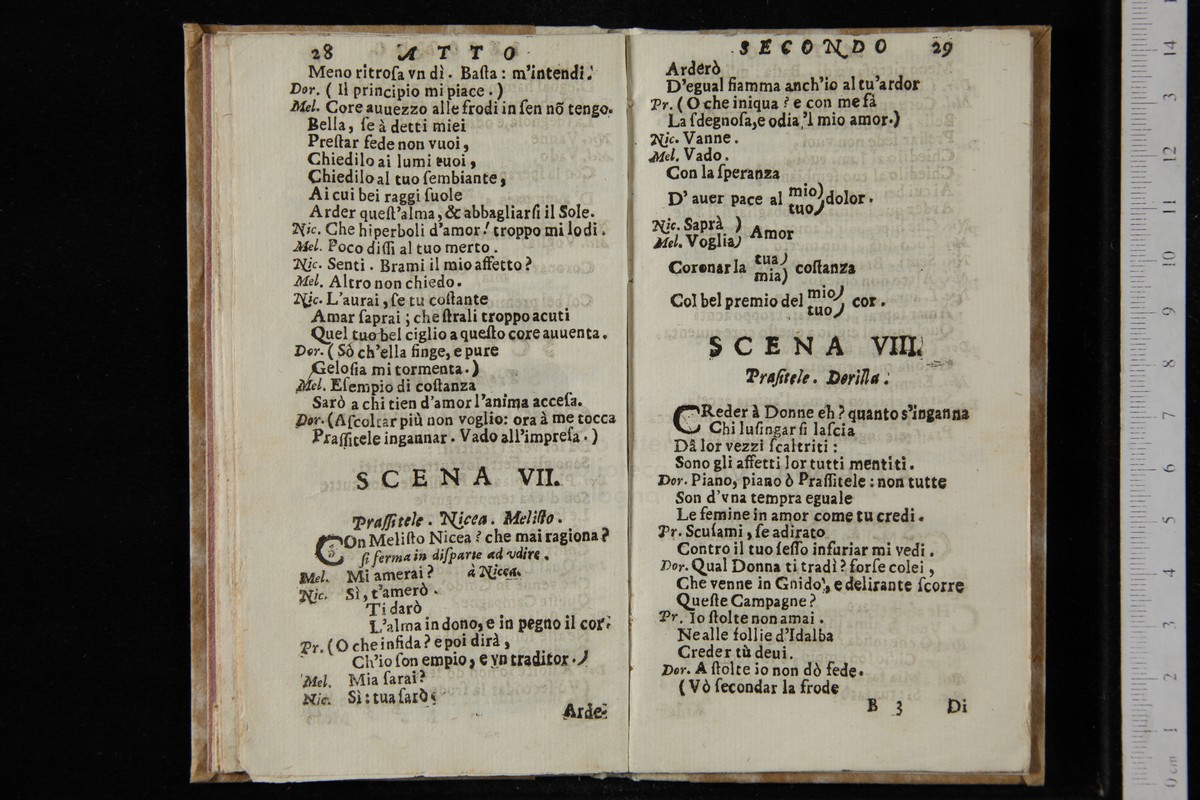 28 ATTO
Meno ritroſa vn dì. Baſta: m'intendi.
Dor. (Il principio mi piace.)
Mel. Core auuezzo alle frodi in ſen nõ tengo.
Bella, ſe à detti miei
Preſtar fede non vuoi,
Chiedilo ai lumi tuoi,
Chiedilo al tuo ſembiante,
Ai cui bei raggi ſuole
Arder queſt'alma, & abbagliarſi il Sole.
Nic. Che hiperboli d'amor! troppo mi lodi.
Mel. Poco diſſi al tuo merto.
Nic. Senti. Brami il mio affetto?
Mel. Altro non chiedo.
Nic. L'aurai, ſe tu coſtante
Amar ſaprai; che ſtrali troppo acuti
Quel tuo bel ciglio a queſto core auuenta.
Dor. (Sò ch'ella finge, e pure
Geloſia mi tormenta.)
Mel. Eſempio di coſtanza
Sarò a chi tien d'amor l'anima acceſa.
Dor. (Aſcoltar più non voglio: ora à me tocca
Praſſitele ingannar. Vado all'impreſa.)
SCENA VII.
Praſſitele. Nicea. Meliſto.
COn Meliſto Nicea? che mai ragiona?
ſi ferma in diſparte ad vdire.
Mel. Mi amerai? à Nicea.
Nic. Sì, t'amerò.
Ti darò
L'alma in dono, e in pegno il cor.
Pr. (O che infida? e poi dirà,
Ch'io ſon empio, e vn traditor.)
Mel. Mia ſarai?
Nic. Sì: tua ſarò;
Arde-
SECONDO 29
Arderò
D'egual fiamma anch'io al tu'ardor
Pr. (O che iniqua? e con me fà
La ſdegnoſa, e odia,'l mio amor.)
Nic. Vanne.
Mel. Vado.
Con la ſperanza
D'auer pace al mio) dolor.
tuo)
Nic. Saprà ) Amor
Mel. Voglia)
Coronar la tua) coſtanza
mia)
Col bel premio del mio) cor.
tuo)
SCENA VIII.
Praſitele. Dorilla.
CReder à Donne eh? quanto s'inganna
Chi luſingar ſi laſcia
Dà lor vezzi ſcaltriti:
Sono gli affetti lor tutti mentiti.
Dor. Piano, piano ò Praſſitele: non tutte
Son d'vna tempra eguale
Le femine in amor come tu credi.
Pr. Scuſami, ſe adirato
Contro il tuo ſeſſo infuriar mi vedi.
Dor. Qual Donna ti tradì? forſe colei,
Che venne in Gnido, e delirante ſcorre
Queſte Campagne?
Pr. Io ſtolte non amai.
Ne alle follie d'Idalba
Creder tù deui.
Dor. A ſtolte io non dò fede.
(Vò ſecondar la frode
B 3 Di